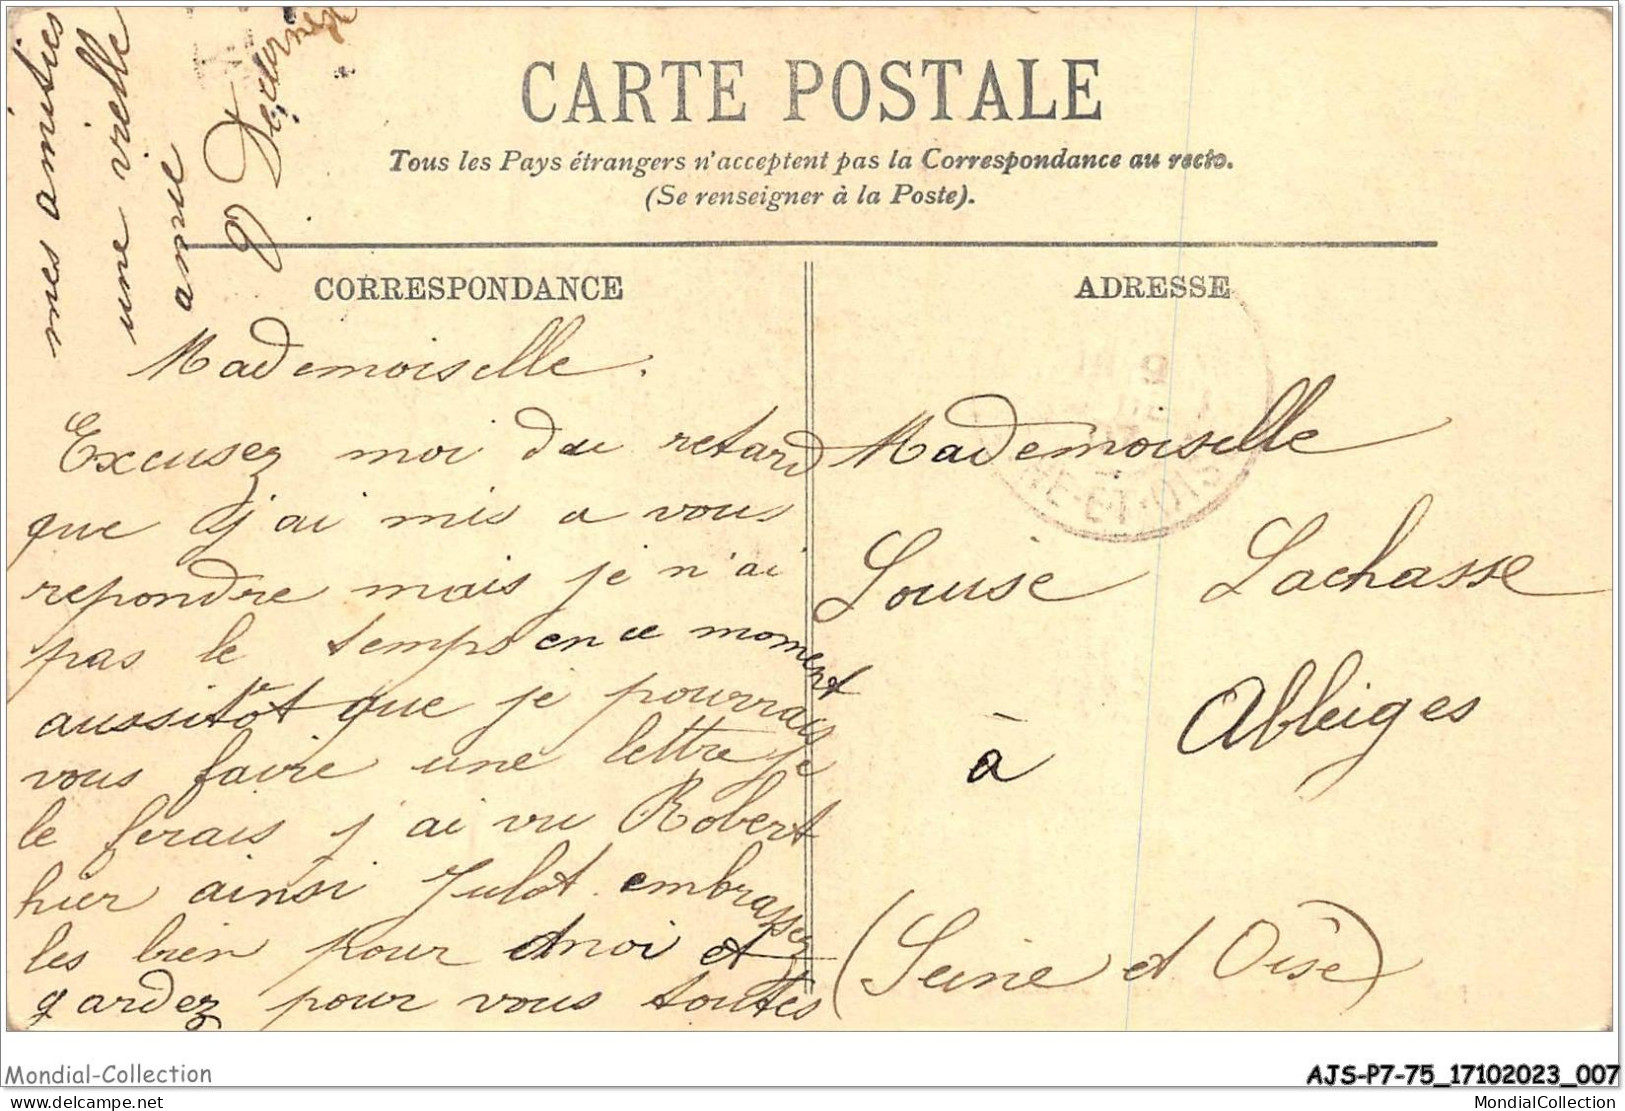 CARTE POSTALE
Tous les Pays étrangers n'acceptent pas la Correspondance au recto.
(Se renseigner à la Poste).
CORRESPONDANCE
Mademoiselle.
Excusez moi du retard
que j'ai mis a vous
repondre mais je n'ai
pas le temps en ce moment
aussitôt que je pourrais
vous faire une lettre je
le ferais j'ai vu Robert
hier ainsi Julot embrassez
les bien pour moi et
gardez pour vous toutes
mes amitiés
une vieille
amie
ADRESSE
Mademoiselle
Louise Lachasse
à Ableiges
(Seine et Oise)
Mondial-Collection
AJS-P7-75_17102023_007
delcampe.net
MondialCollection